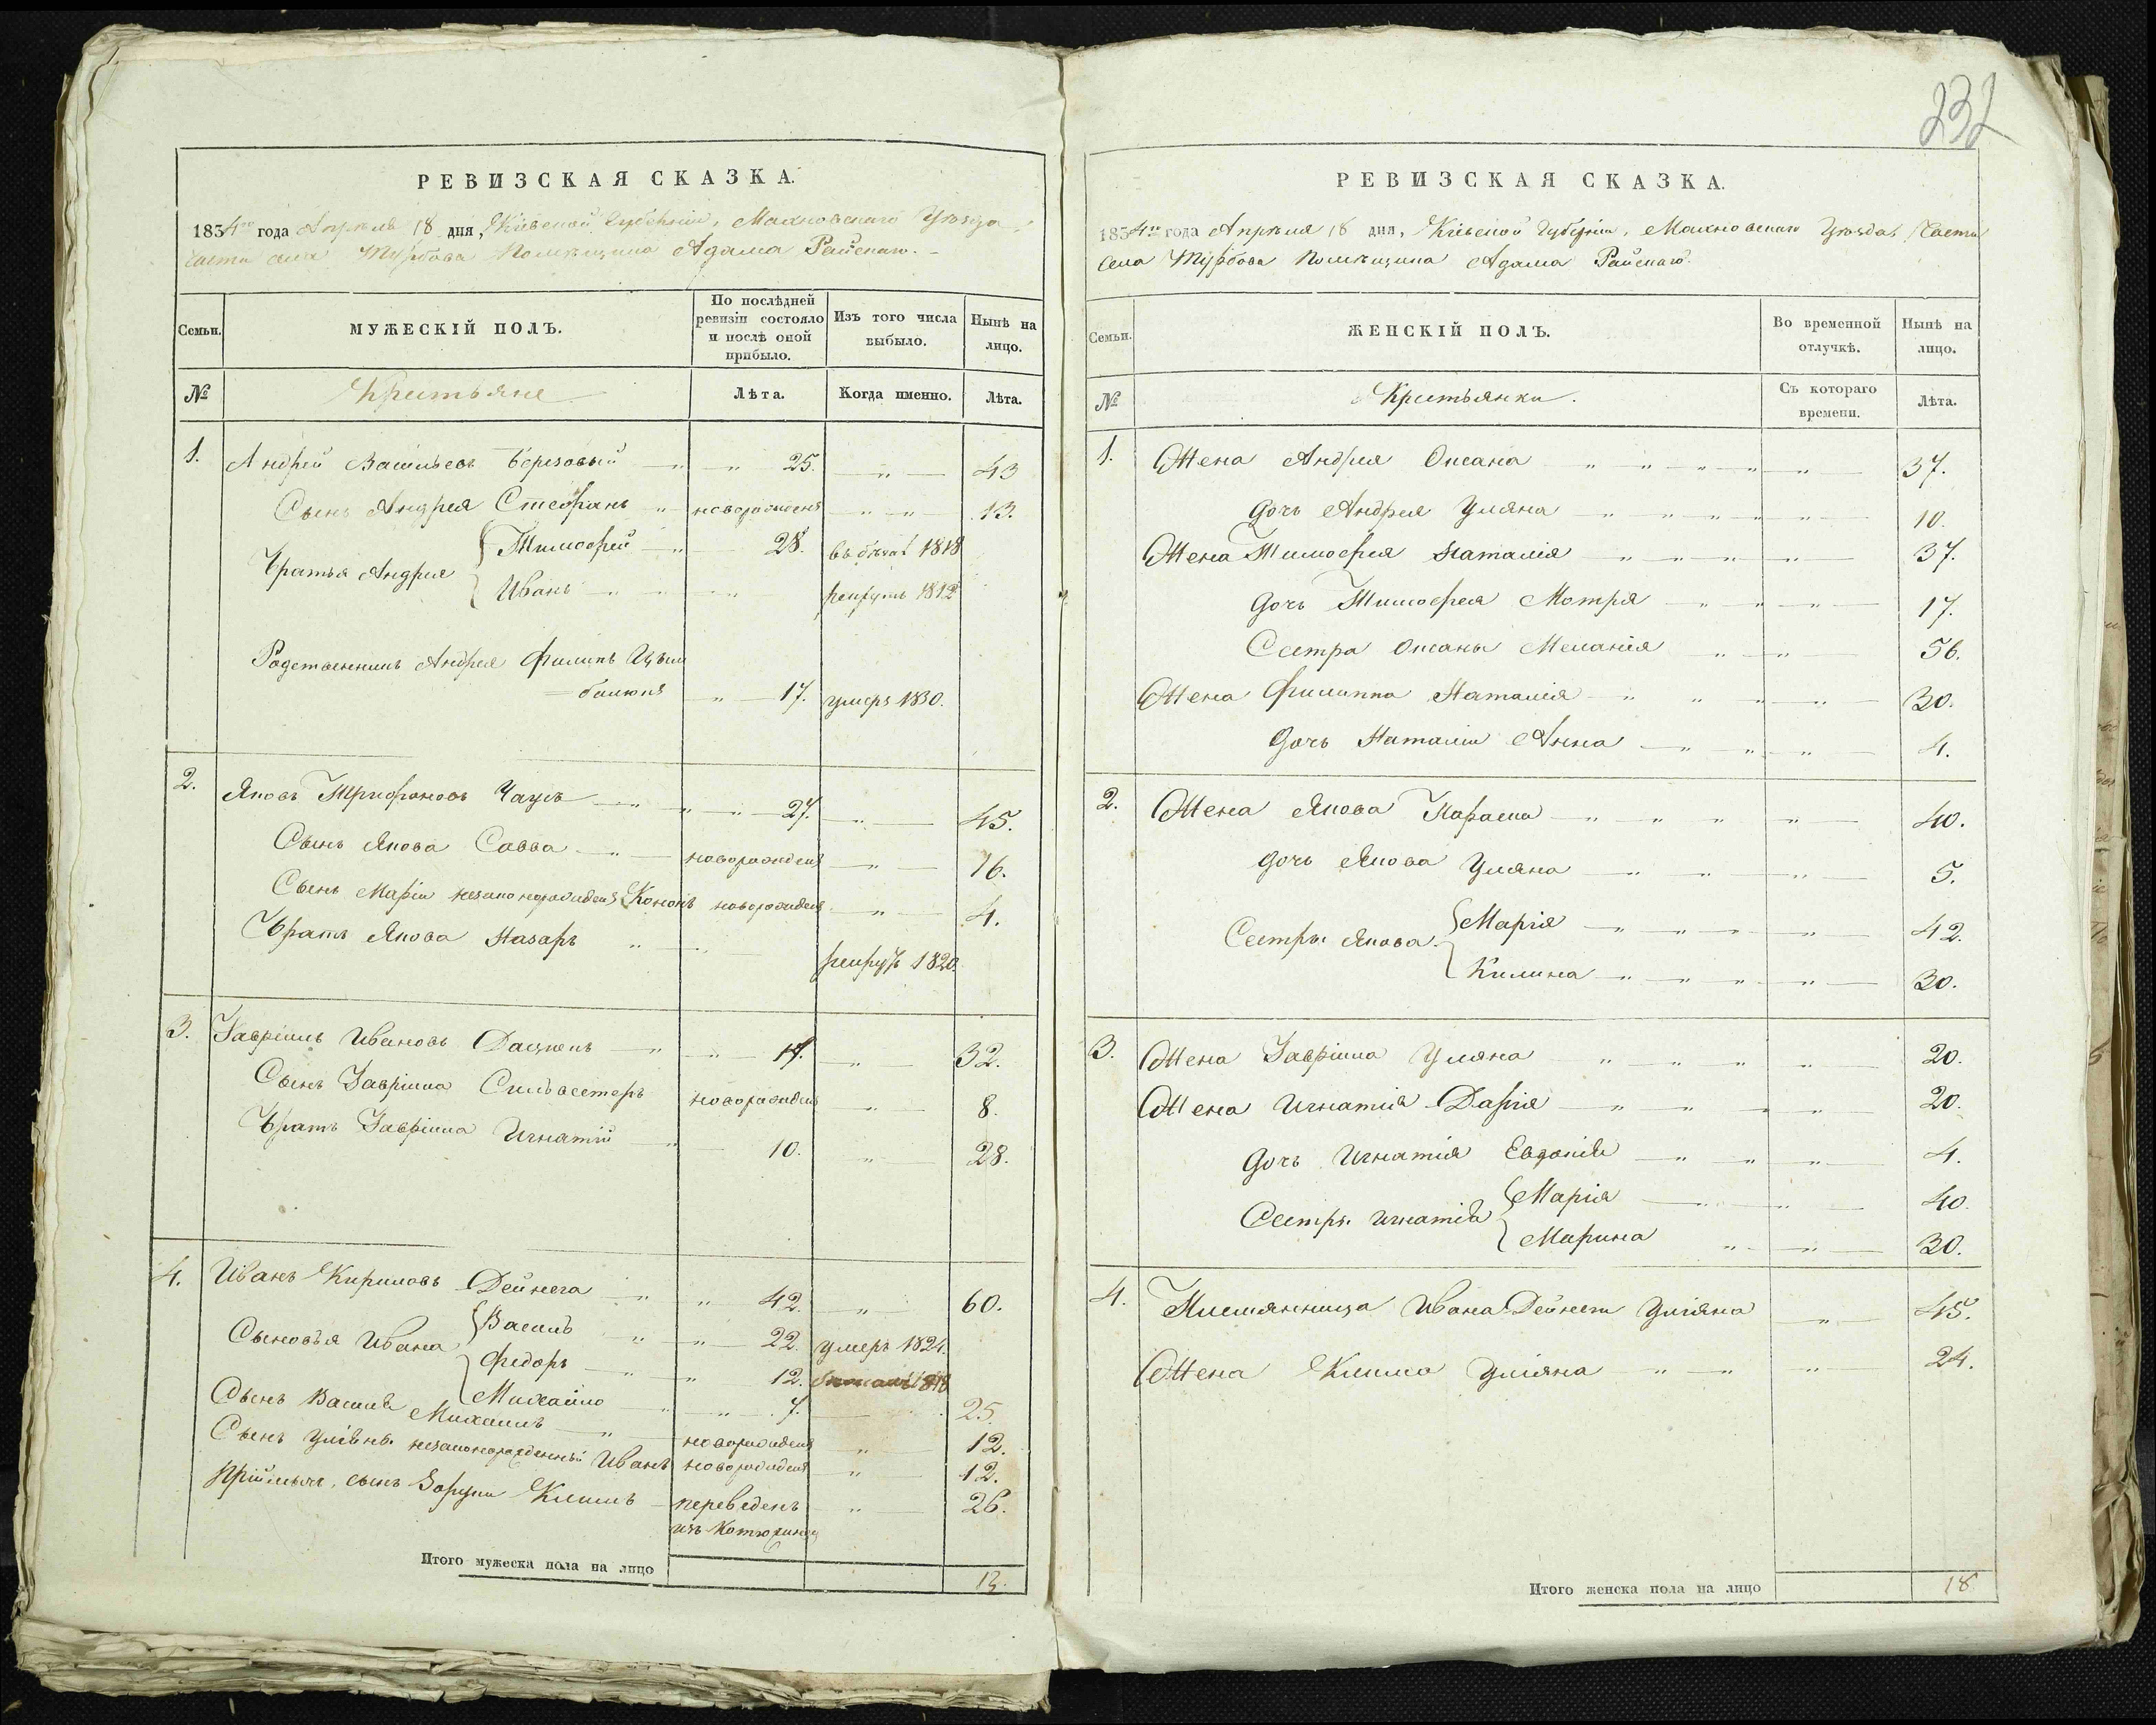 232
РЕВИЗСКАЯ СКАЗКА.
1834го года Апрѣля 18 дня, Кіевской Губерніи, Махновскаго Уѣзда,
части села Турбова Помѣщика Адама Раѣскаго.
Семьи. МУЖЕСКІЙ ПОЛЪ. По послѣдней ревизіи состояло и послѣ оной прибыло. Изъ того числа выбыло. Нынѣ на лицо.
№ Крестьяне Лѣта. Когда именно. Лѣта.
1. Андрей Васильевъ Березовый 25. 43
Сынъ Андрея Стефанъ новорожденъ 13.
Братья Андрея Тимофей 28. въ бѣгах 1818
Иванъ рекрутъ 1812
Родственникъ Андрея Филипъ
17. умеръ 1830.
2. Яковъ Трифоновъ Чауръ 27. 45.
Сынъ Якова Савва новорожденъ 16.
Сынъ Маріи незаконорожденъ Кононъ новорожденъ 4.
Братъ Якова Назаръ рекрутъ 1820.
3. Гавріилъ Ивановъ Дацюкъ 14. 32.
Сынъ Гавріила Сильвестеръ новорожденъ 8.
Братъ Гавріила Игнатій 10. 28.
4. Иванъ Кириловъ Дейнега 42. 60.
Сыновья Ивана Василь 22. умеръ 1824.
Федоръ 12. 1818
Михайло 7. 25.
Сынъ Василя Михаилъ новорожденъ 12.
Сынъ Уліяны незаконорожденный Иванъ новорожденъ 12.
Пріймычъ, сынъ Климъ переведенъ 26.
изъ
Итого мужеска пола на лицо 13.
РЕВИЗСКАЯ СКАЗКА.
1834го года Апрѣля 18 дня, Кіевской Губерніи, Махновскаго Уѣзда, Части
села Турбова Помѣщика Адама Раѣскаго.
Семьи. ЖЕНСКІЙ ПОЛЪ. Во временной отлучкѣ. Нынѣ на лицо.
№ Крестьянки. Съ котораго времени. Лѣта.
1. Жена Андрея Оксана 37.
дочь Андрея Уляна 10.
Жена Тимофея Наталія 37.
дочь Тимофея Мотря 17.
Сестра Оксаны Меланія 56.
Жена Филиппа Наталія 30.
дочь Наталіи Анна 4.
2. Жена Якова Параска 40.
дочь Якова Уляна 5.
Сестры Якова Марія 42.
Килина 30.
3. Жена Гавріила Уляна 20.
Жена Игнатія Дарія 20.
дочь Игнатія Евдокія 4.
Сестры Игнатія Марія 40.
Марина 30.
4. Племянница Ивана Дейнеги Уліяна 45.
Жена Клима Уліяна 24.
Итого женска пола на лицо 18